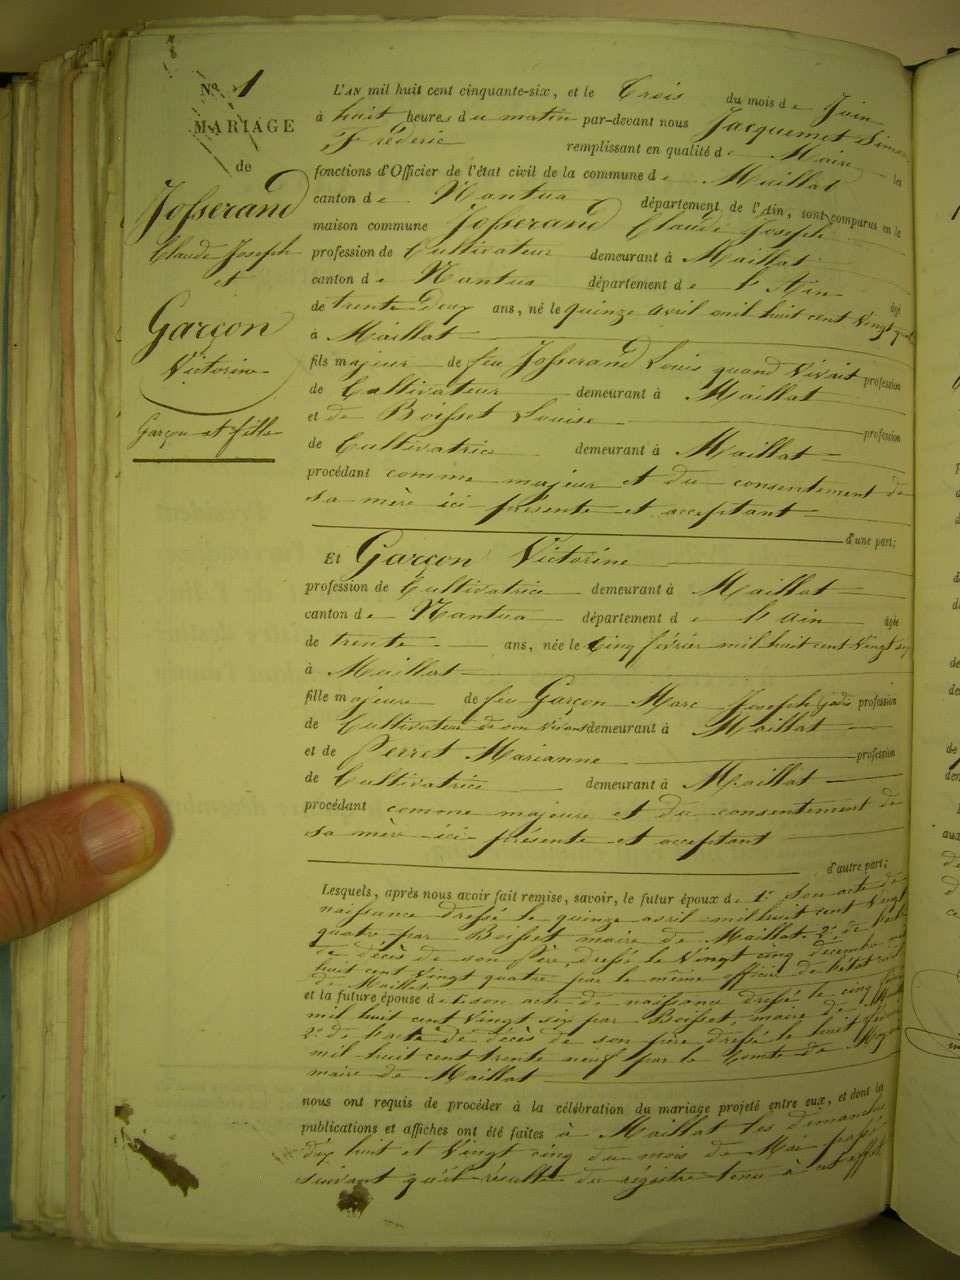 No 1
MARIAGE
de
Josserand
Claude Joseph
et
Garçon
Victorine
Garçon et fille
L'AN mil huit cent cinquante-six, et le Trois du mois de Juin
à huit heures du matin par-devant nous Jacquemet Simon
Frédéric remplissant en qualité de Maire les
fonctions d'Officier de l'état civil de la commune de Maillat
canton de Nantua département de l'Ain, sont comparus en la
maison commune Josserand Claude Joseph
profession de Cultivateur demeurant à Maillat
canton de Nantua département de l'Ain âgé
de trente deux ans, né le quinze avril mil huit cent vingt quatre
à Maillat
fils majeur de feu Josserand Louis quand vivait profession
de Cultivateur demeurant à Maillat
et de Boisset Louise profession
de Cultivatrice demeurant à Maillat
procédant comme majeur et du consentement de
sa mère ici présente et acceptant
d'une part;
Et Garçon Victorine
profession de Cultivatrice demeurant à Maillat
canton de Nantua département de l'ain âgée
de trente ans, née le cinq février mil huit cent vingt six
à Maillat
fille majeure de feu Garçon Marc Joseph profession
de Cultivateur de son vivant demeurant à Maillat
et de Perret Marianne profession
de Cultivatrice demeurant à Maillat
procédant comme majeure et du consentement de
sa mère ici présente et acceptant
d'autre part;
Lesquels, après nous avoir fait remise, savoir, le futur époux de 1o Son acte de
naissance dressé le quinze avril mil huit cent vingt
quatre par Boisset maire de Maillat. 2o de l'acte
de décès de son père, dressé le vingt cinq décembre mil
huit cent vingt quatre par le même officier de l'état civil
de Maillat
et la future épouse de 1o son acte de naissance dressé le cinq février
mil huit cent vingt six par Boisset, maire de Maillat
2o de l'acte de décès de son père dressé le huit
mil huit cent trente neuf par le Comte de
maire de Maillat
nous ont requis de procéder à la célébration du mariage projeté entre eux, et dont la
publications et affiches ont été faites à Maillat les dimanches
dix huit et vingt cinq du mois de Mai passé
suivant qu'il résulte du régistre tenu à cet effet